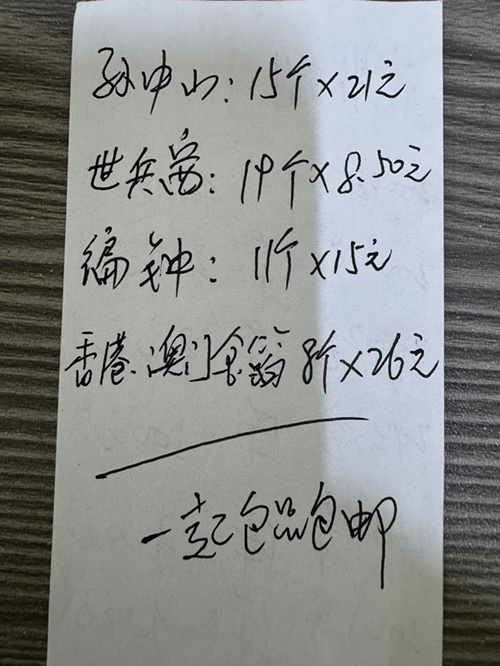 孙中山：15个×21元
世乒赛：19个×8.50元
编钟：11个×15元
香港.澳门 8个×26元
一起包品包邮